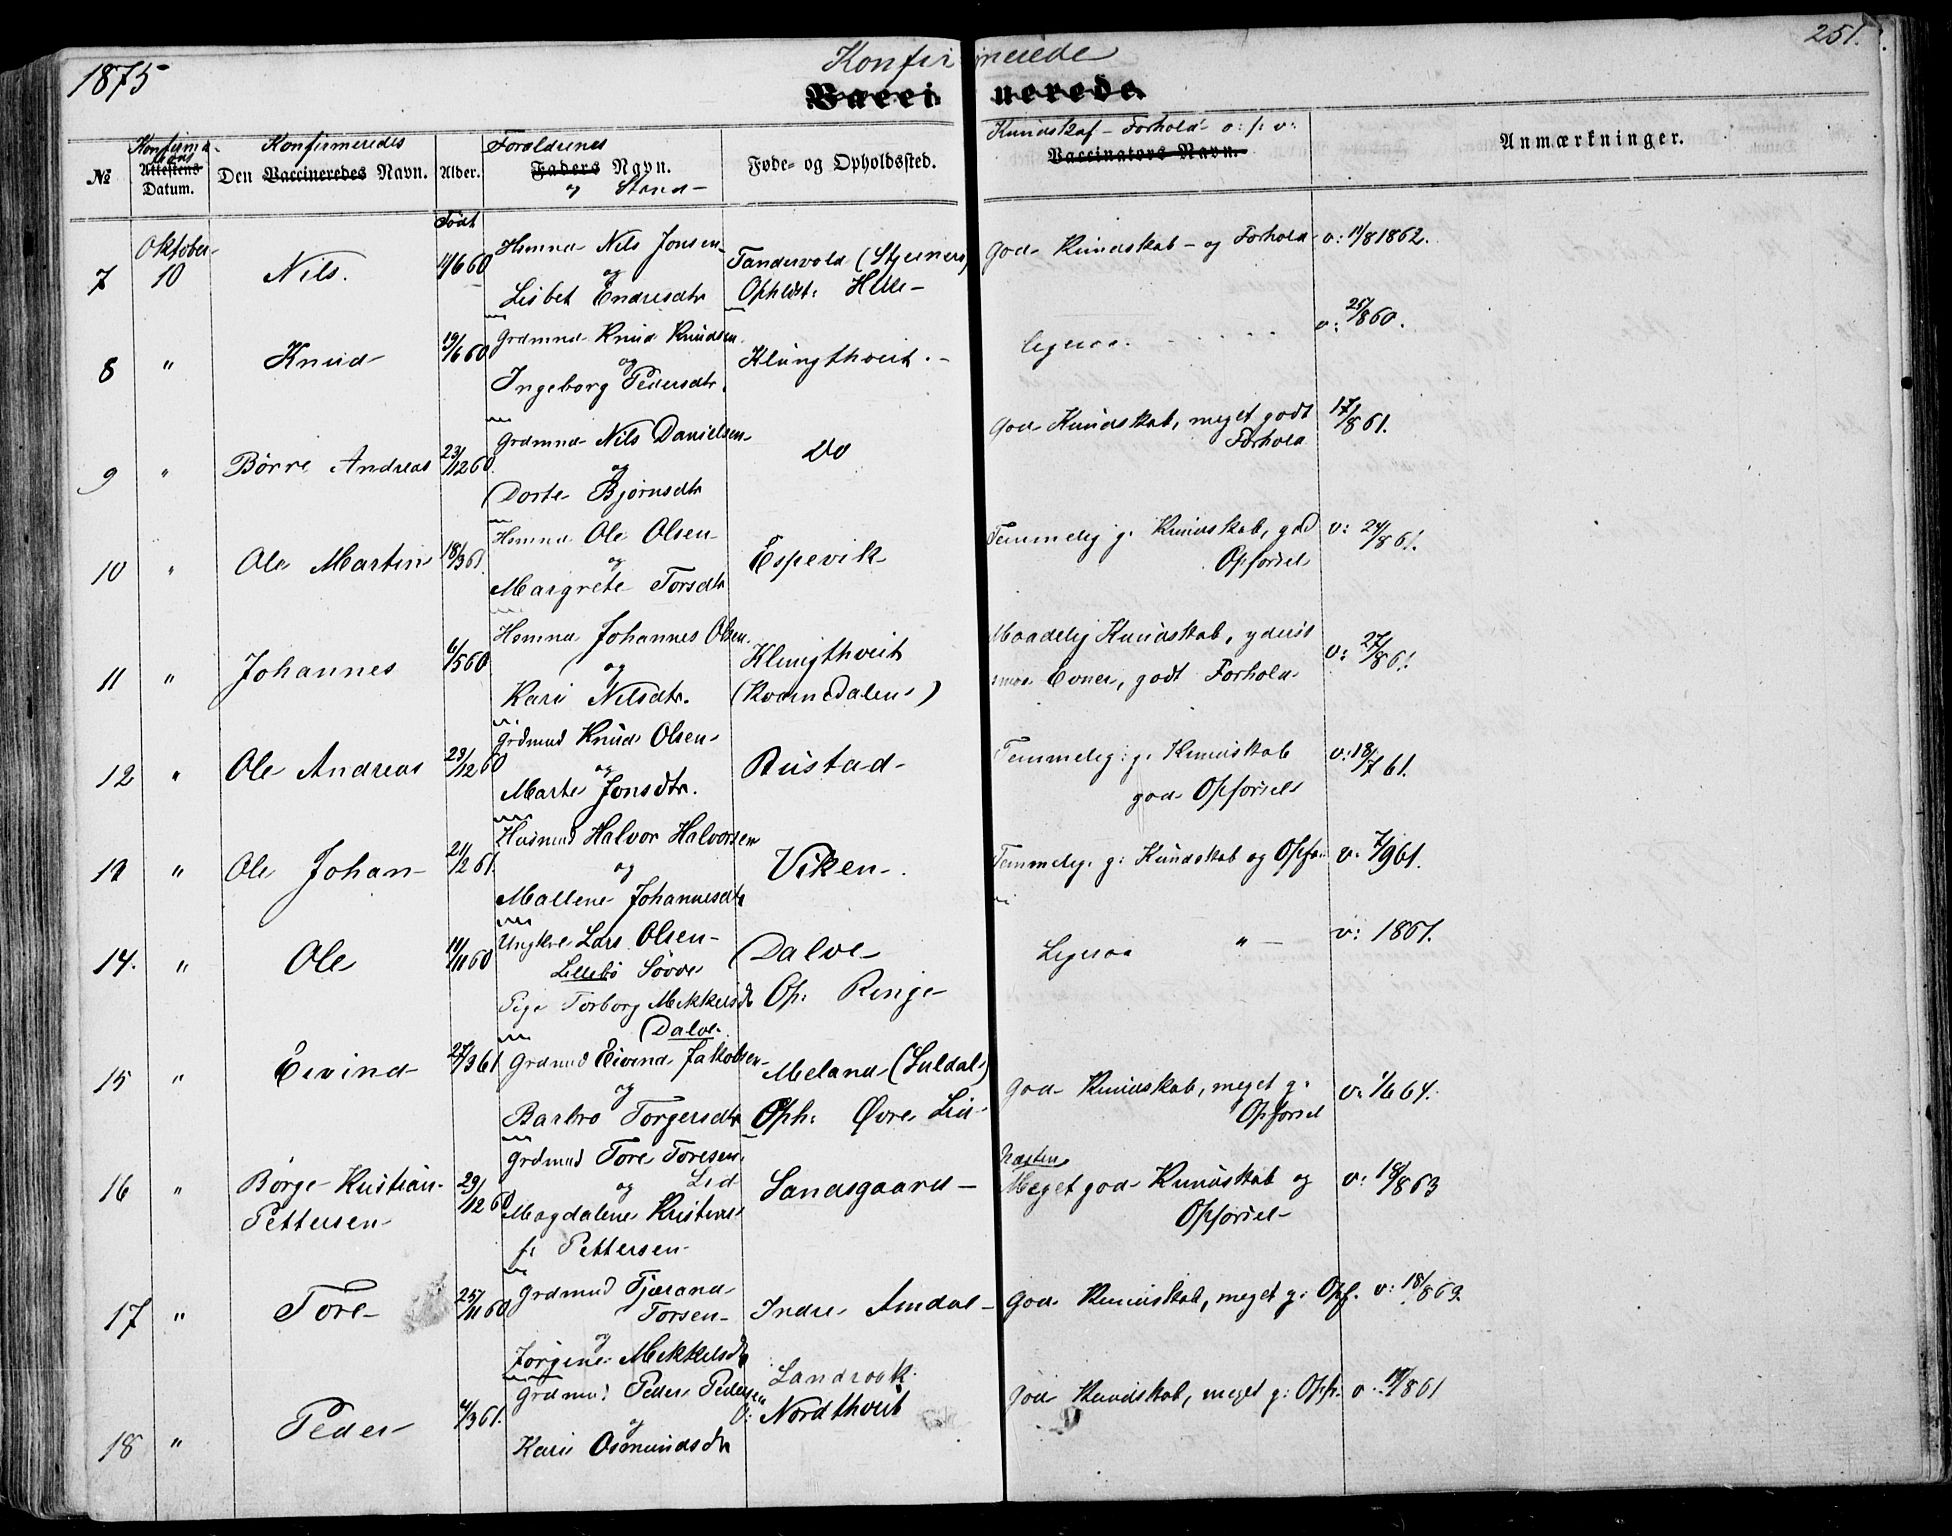 251.
1875
Konfirmerede
Vaccinerede
№
Konfirma-
tions
Attestens
Datum.
Konfirmeredes
Den Vaccineredes Navn.
Alder.
Forældrenes
Faders Navn.
og Stand
Føde- og Opholdssted.
Kundskab - Forhold - o: s: v:
Vaccinators Navn.
Anmærkninger.
Født
7
Oktober
10
Nils.
11/6 60
Hmnd Nils Jonsen
og
Lisbet Endresdtr
Tandervold (Stjernerø)
Opholdst: Helle
God Kundskab og Forhold
v: 11/8 1862.
8
"
Knud
19/6 60
Grdmnd Knud Knudsen
og
Ingeborg Pedersdtr.
Klungtveit.
ligesaa.
v: 25/8 60.
9
"
Børre Andreas
23/12 60
Grdmnd Nils Danielsen
og
Dorte Bjørnsdtr
Do
God Kundskab, meget godt
Forhold
17/8 61.
10
"
Ole Martin
18/3 61.
Hmnd Ole Olsen
og
Margrete Torsdtr
Espevik
Temmelig g. Kundskab, god
Opførsel
v: 24/8 61.
11
"
Johannes
6/5 60
Hmnd Johannes Olsen
og
Kari Nilsdtr.
Klungthveit
(Kvarnedalen)
Maadelig Kundskab, yderst
smaa Evner, godt Forhold
v: 27/8 61.
12
"
Ole Andreas
29/12 60
Grdmnd Knud Olsen
og
Marte Jonsdtr.
Bustad
Temmelig g. Kundskab
god Opførsel
v: 18/7 61.
13
"
Ole Johan
21/2 61.
Husmnd Halvor Halvorsen
og
Mallene Johannesdtr
Viken.
Temmelig g: Kundskab og Opfø-
v: 7/9 61.
14.
"
Ole
11/11 60
Ungkr Lars Olsen
Lillebø Søvde
Pige Torborg Mikkelsdtr
Dalve
Dalve
Op: Ringe
Ligesaa "
v: 1861.
15
"
Eivind
27/3 61
Grdmnd Eivind Jakobsen
og
Barbro Torgersdtr
Meland (Suldal)
Oph: Øvre Lid
God Kundskab, meget g:
Opførsel
v: 1/6 64.
16
"
Børge Kristian
Pettersen
29/12 60
Grdmnd Tore Toresen
og Lid
Magdalene Kristine
f. Pettersen
Sandsgaard
Næsten
Meget god Kundskab og
Opførsel
v: 18/8 63
17
"
Tore
25/11 60
Grdmnd Tjærand
Torsen
og
Jørgine Mikkelsdtr
Indre Amdal
God Kundskab, meget g: Opf.
v: 18/8 63.
18
"
Peder
4/3 61.
Grdmnd Peder Pedersen
og
Kari Osmundsdtr
Landrock
o: Nordthveit
God Kundskab, meget g: Opf.
v: 19/8 61